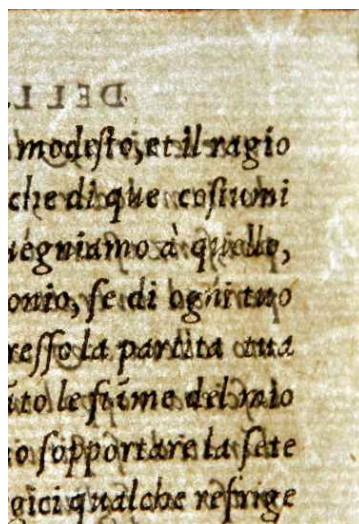 modesto, et il ragio
che di que costumi
uegniamo à quello,
onio, se di ogni tuo
resso la partita tua
le fiãme del mio
o sopportare la sete
gici qualche refrige